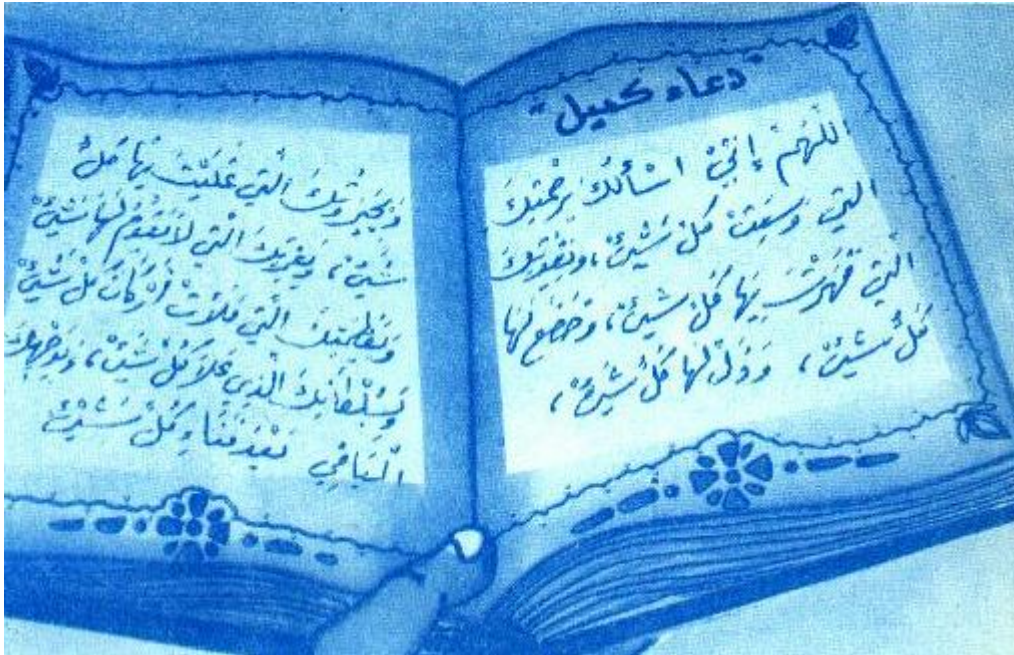 "دعاء كميل"
اللّهُمَّ إِنّيْ اسْأَلُكَ بِرَحْمَتِكَ
الَّتي وَسِعَتْ كُلَّ شَيْئْ، وَبِقُوَّتِكَ
الَّتِي قَهَرْتَ بِهَا كُلَّ شَيْئْ، وَخَضَعَ لَهَا
كُلُّ شَيْئْ، وَذَلَّ لَهَا كُلُّ شَيْئْ،
وَبِجَبَرُوتِكَ الَّتِي غَلَبْتَ بِهَا كُلَّ
شَيْئْ، وَبِعِزَّتِكَ الَّتي لاَ يَقُوْمُ لَهَا شَيْئْ
وَبِعَظَمَتِكَ الَّتِي مَلأَتْ أَرْكَانَ كُلِّ شَيْئْ
وَبِسُلْطَانِكَ الَّذِي عَلاَ كُلَّ شَيْئْ، وَبِوَجْهِكَ
الْبَاقِي بَعْدَ فَنَاءِ كُلِّ شَيْئْ